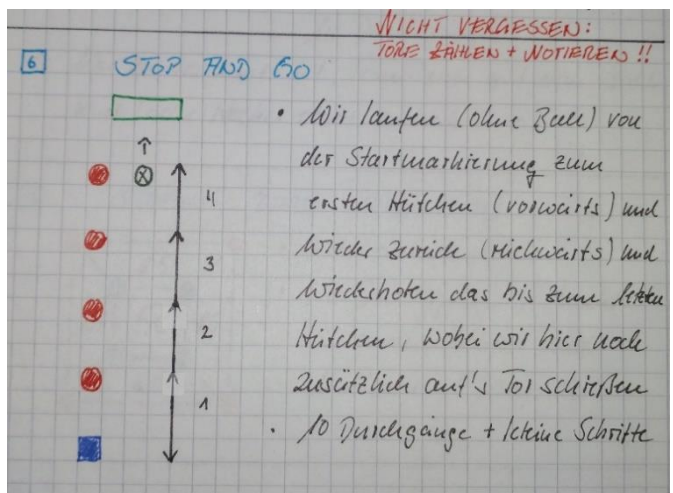 NICHT VERGESSEN:
TORE ZÄHLEN + NOTIEREN !!
6 STOP AND GO
• Wir laufen (ohne Ball) von
der Startmarkierung zum
ersten Hütchen (vorwärts) und
wieder zurück (rückwärts) und
wiederholen das bis zum letzten
Hütchen, wobei wir hier noch
zusätzlich auf's Tor schießen
• 10 Durchgänge + kleine Schritte
4
3
2
1